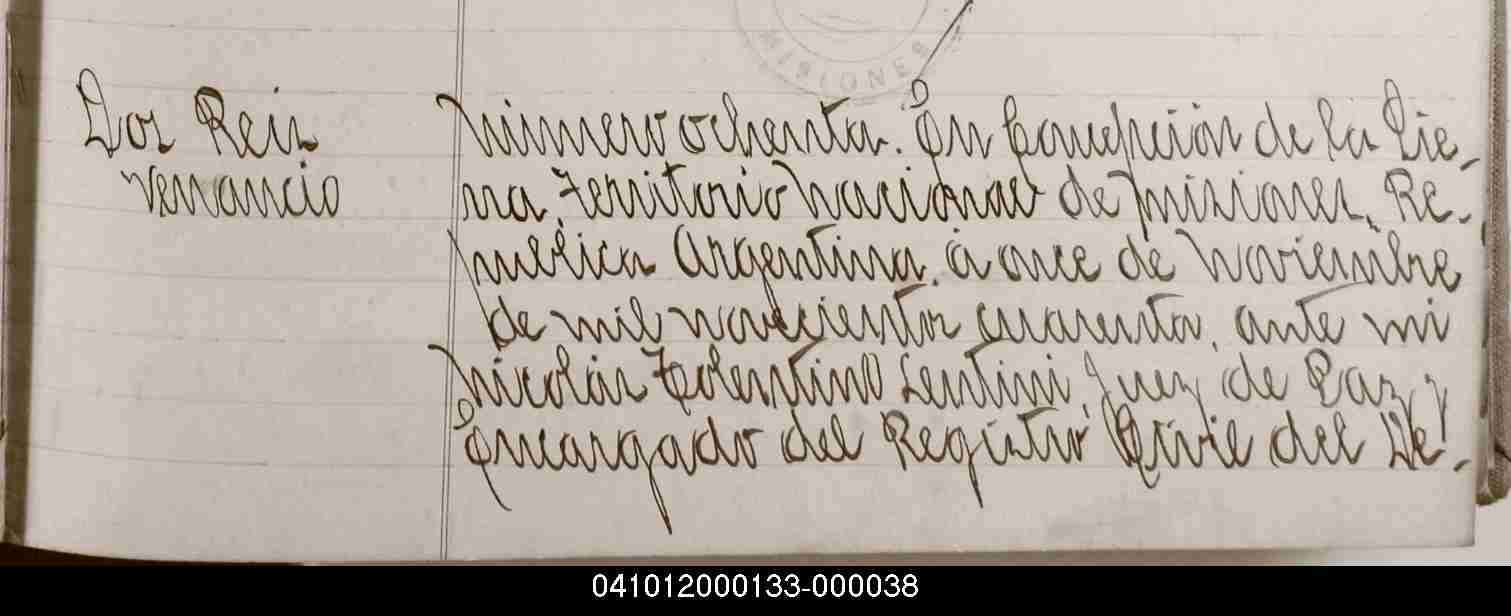 MISIONES
Dos Reis
Venancio
Número ochenta. En Concepción de la Sie-
rra, Territorio Nacional de Misiones, Re-
pública Argentina, á once de Noviembre
de mil novecientos cuarenta, ante mi
Nicolás Tolentino Lentini, Juez de Paz y
Encargado del Registro Civil del De-
041012000133-000038